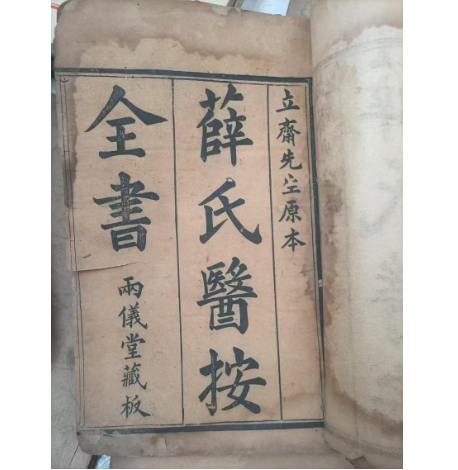 立齋先生原本
薛氏醫按
全書
兩儀堂藏板